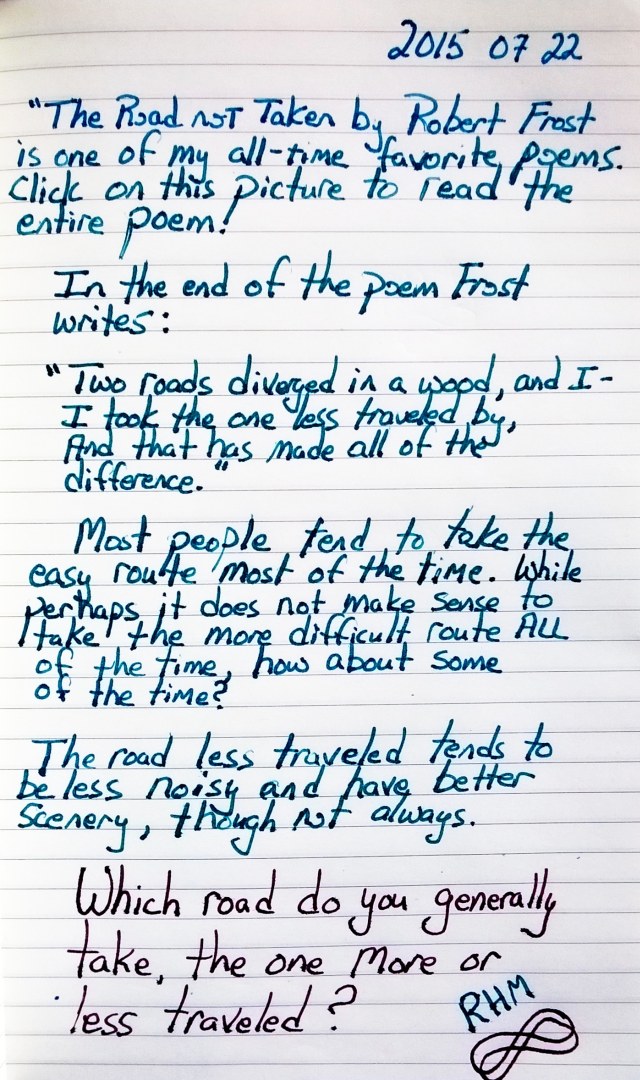 2015 07 22
"The Road not Taken by Robert Frost
is one of my all-time favorite poems.
Click on this picture to read the
entire poem!
In the end of the poem Frost
writes:
"Two roads diverged in a wood, and I-
I took the one less traveled by,
And that has made all of the
difference."
Most people tend to take the
easy route most of the time. While
perhaps it does not make sense to
take the more difficult route ALL
of the time, how about some
of the time?
The road less traveled tends to
be less noisy and have better
scenery, though not always.
Which road do you generally
take, the one more or
less traveled?
RHM